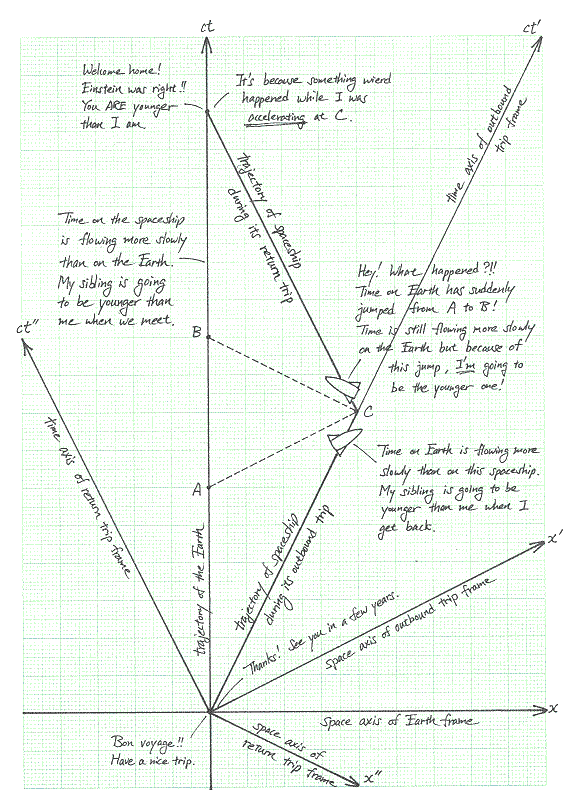 ct
ct'
Welcome home!
Einstein was right!!
You ARE younger
than I am.
It's because something wierd
happened while I was
accelerating at C.
time axis of outbound
trip frame
trajectory of spaceship
during its return trip
Time on the spaceship
is flowing more slowly
than on the Earth.
My sibling is going
to be younger than
me when we meet.
Hey! What happened?!!
Time on Earth has suddenly
jumped from A to B!
Time is still flowing more slowly
on the Earth but because of
this jump, I'm going to
be the younger one!
ct"
B
C
A
time axis of return trip frame
Time on Earth is flowing more
slowly than on this spaceship.
My sibling is going to be
younger than me when I
get back.
trajectory of the Earth
trajectory of spaceship
during its outbound trip
x'
Thanks! See you in a few years.
space axis of outbound trip frame
x
space axis of Earth frame
Bon voyage!!
Have a nice trip.
space axis of
return trip frame
x"